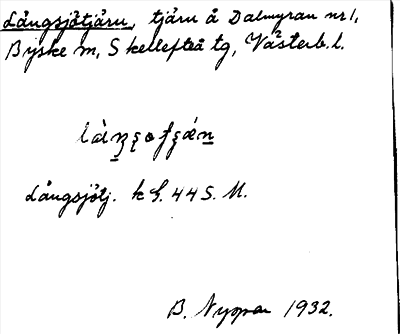 Långsjötjärn, tjärn å Dalmyran nr 1,
Byske sn, Skellefteå tg, Västerb. l.
Långsjötj. k G. 44 S. M.
B. Nyman 1932.